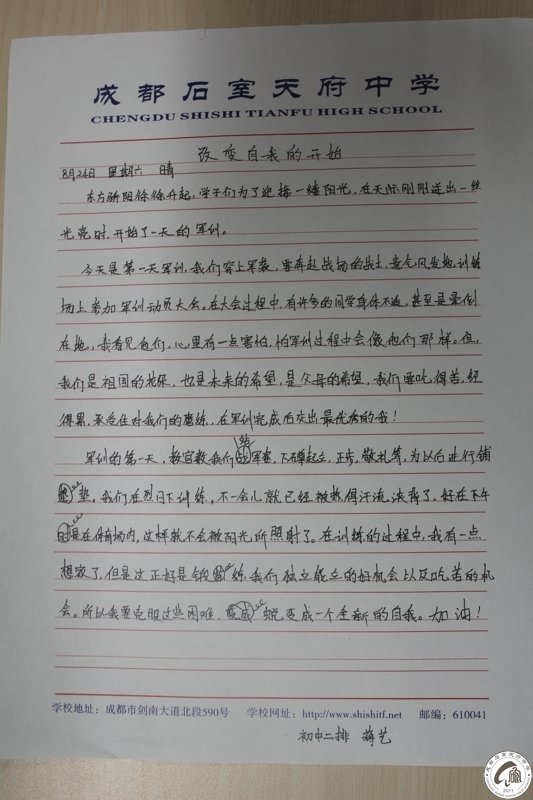 成都石室天府中学
CHENGDU SHISHI TIANFU HIGH SCHOOL
改变自我的开始
8月24日 星期六 晴
东方骄阳徐徐升起,学子们为了迎接一缕阳光,在天际刚刚逆出一丝
光亮时,开始了一天的军训。
今天是第一天军训,我们穿上军装,要奔赴战场的战士,意气风发地训练
场上参加军训动员大会。在大会过程中,有许多的同学身体不适,甚至是晕倒
在地,我看见他们,心里有一点害怕,怕军训过程中会像他们那样。但,
我们是祖国的花朵,也是未来的希望,是父母的希望,我们要吃得苦,经
得累,承受住对我们的磨练,在军训完成后交出最优秀的我!
军训的第一天,教官教我们站军姿,下蹲起立,正步,敬礼等,为以后进行铺
垫。我们在烈日下训练,不一会儿就已经被热得汗流浃背了,好在下午
是在体育场内,这样就不会被阳光所照射了。在训练的过程中,我有一点
想家了,但是这正好是锻炼我们独立能力的好机会以及吃苦的机
会。所以我要克服这些困难,蜕变成一个全新的自我。加油!
学校地址:成都市剑南大道北段590号 学校网址:http://www.shishitf.net 邮编:610041
初中二排 蒋艺
2011